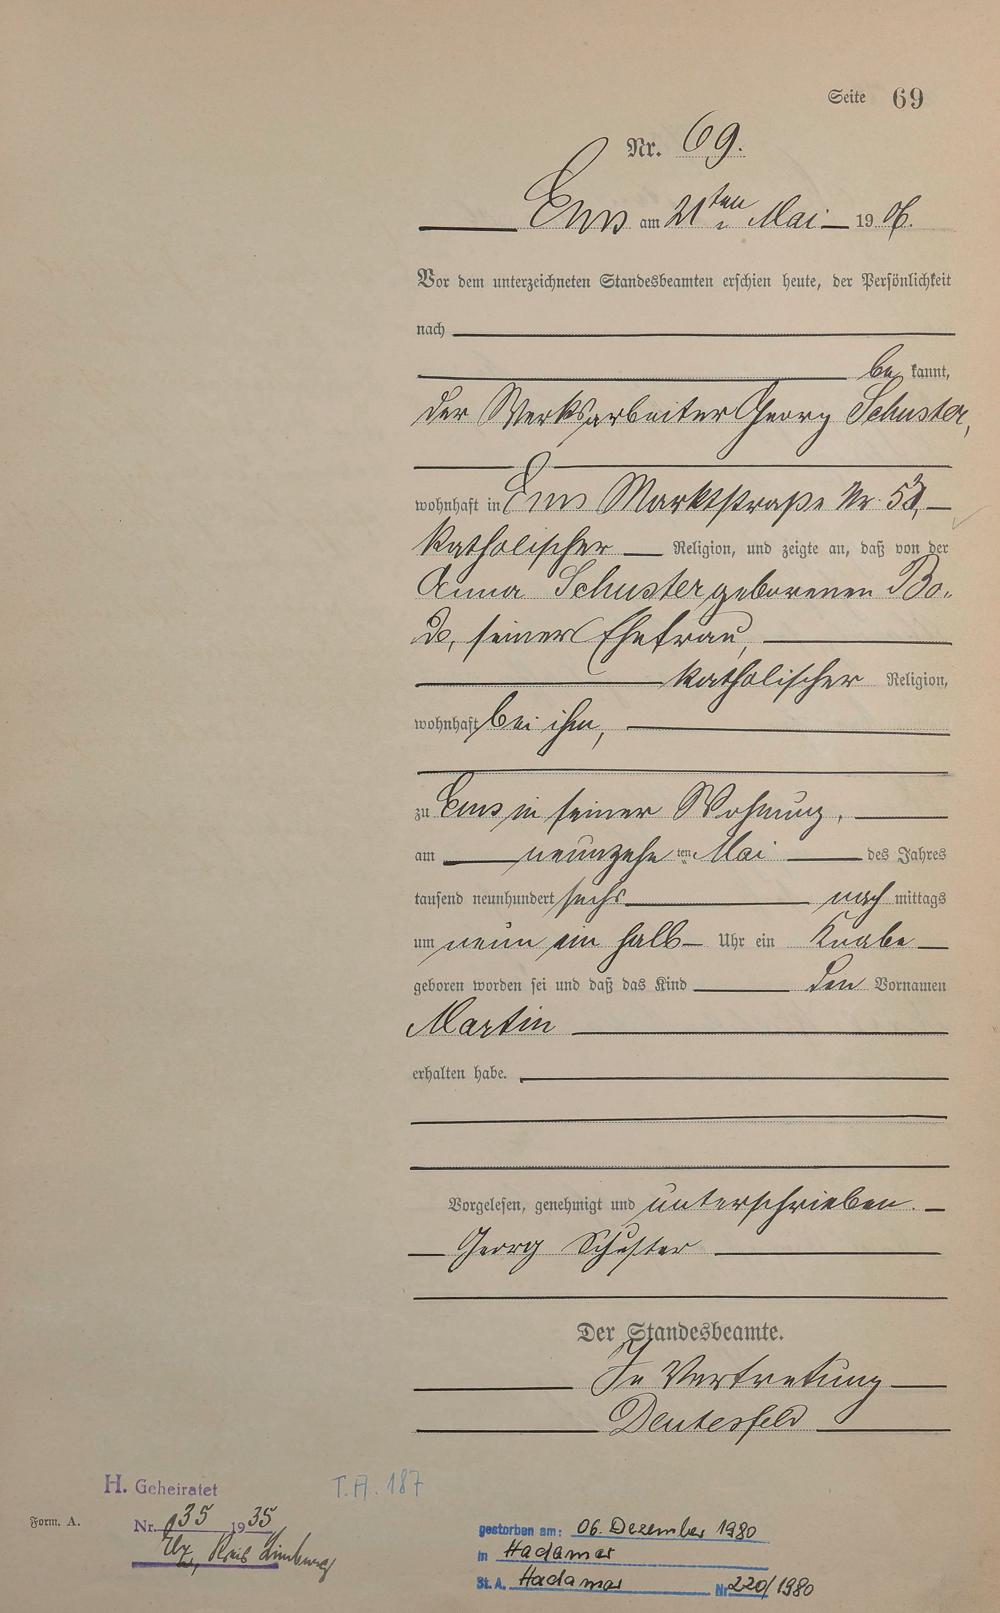 Seite 69
Nr. 69.
Ems am 21ten Mai 1906.
Vor dem unterzeichneten Standesbeamten erschien heute, der Persönlichkeit
nach
be kannt,
der Werksarbeiter Georg Schuster,
wohnhaft in Ems Marktstraße Nr.
katholischer Religion, und zeigte an, daß von der
Anna Schuster geborenen Bo-
de, seiner Ehefrau,
katholischer Religion,
wohnhaft bei ihm,
zu Ems in seiner Wohnung,
am neunzehn ten Mai des Jahres
tausend neunhundert sechs nach mittags
um neun ein halb Uhr ein Knabe
geboren worden sei und daß das Kind den Vornamen
Martin
erhalten habe.
Vorgelesen, genehmigt und unterschrieben.
Georg Schuster
Der Standesbeamte.
In Vertretung
H. Geheiratet
T.A. 187
Form. A.
Nr. 1935
Kreis Limburg
gestorben am: 06. Dezember 1980
in Hadamar
St. A. Hadamar Nr 220/1980